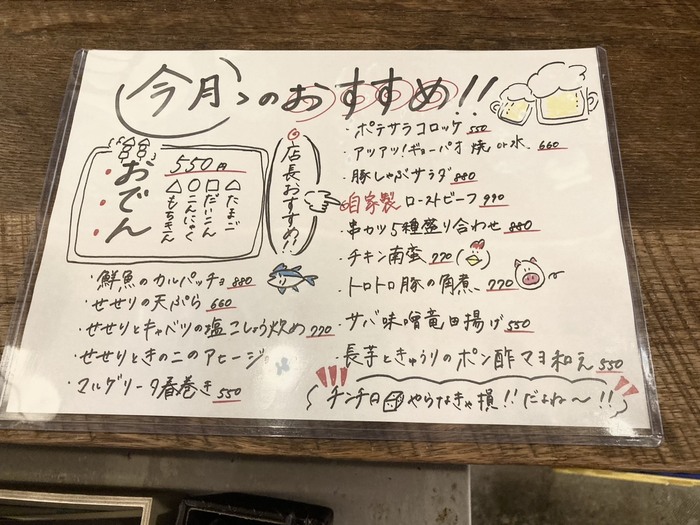 今月のおすすめ!!
550円
おでん
たまご
だいこん
こんにゃく
もちきん
店長おすすめ!!
・鮮魚のカルパッチョ 880
・せせりの天ぷら 660
・せせりとキャベツの塩こしょう炒め 770
・せせりときのこのアヒージョ
・マルゲリータ春巻き 550
・ポテサラコロッケ 550
・アツアツ!ギョーパオ 焼 or 水 660
・豚しゃぶサラダ 880
自家製 ローストビーフ 990
・串カツ5種盛り合わせ 880
・チキン南蛮 770
・トロトロ豚の角煮 770
・サバ味噌竜田揚げ 550
・長芋ときゅうりのポン酢マヨ和え 550
チンチロ やらなきゃ損!!だよね〜!!